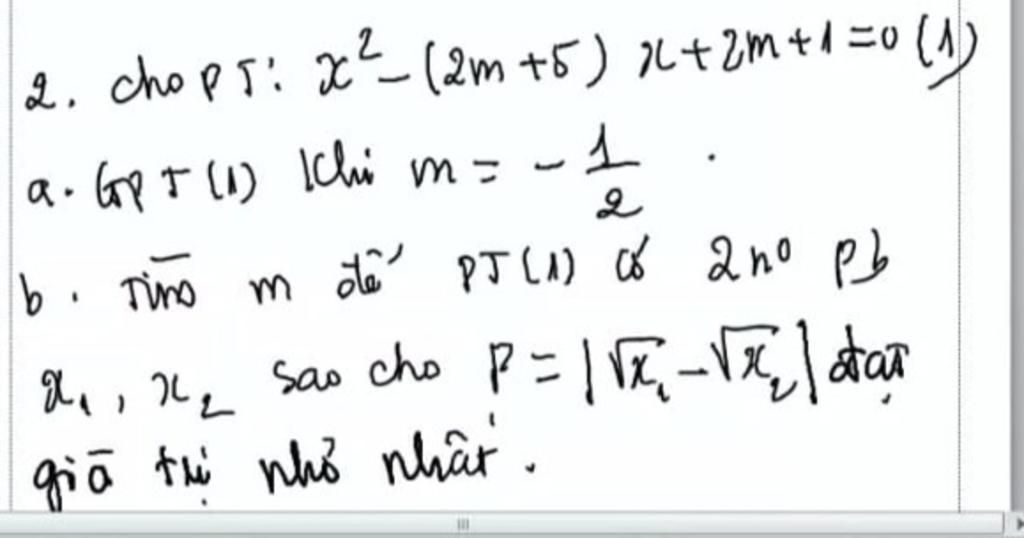 2. cho PT: x² - (2m+5) x + 2m + 1 = 0 (1)
a. GPT (1) Khi m = - 1/2 .
b. Tìm m để PT (1) có 2 n⁰ pb
x₁, x₂ sao cho P = |√x₁ - √x₂| đạt
giá trị nhỏ nhất.